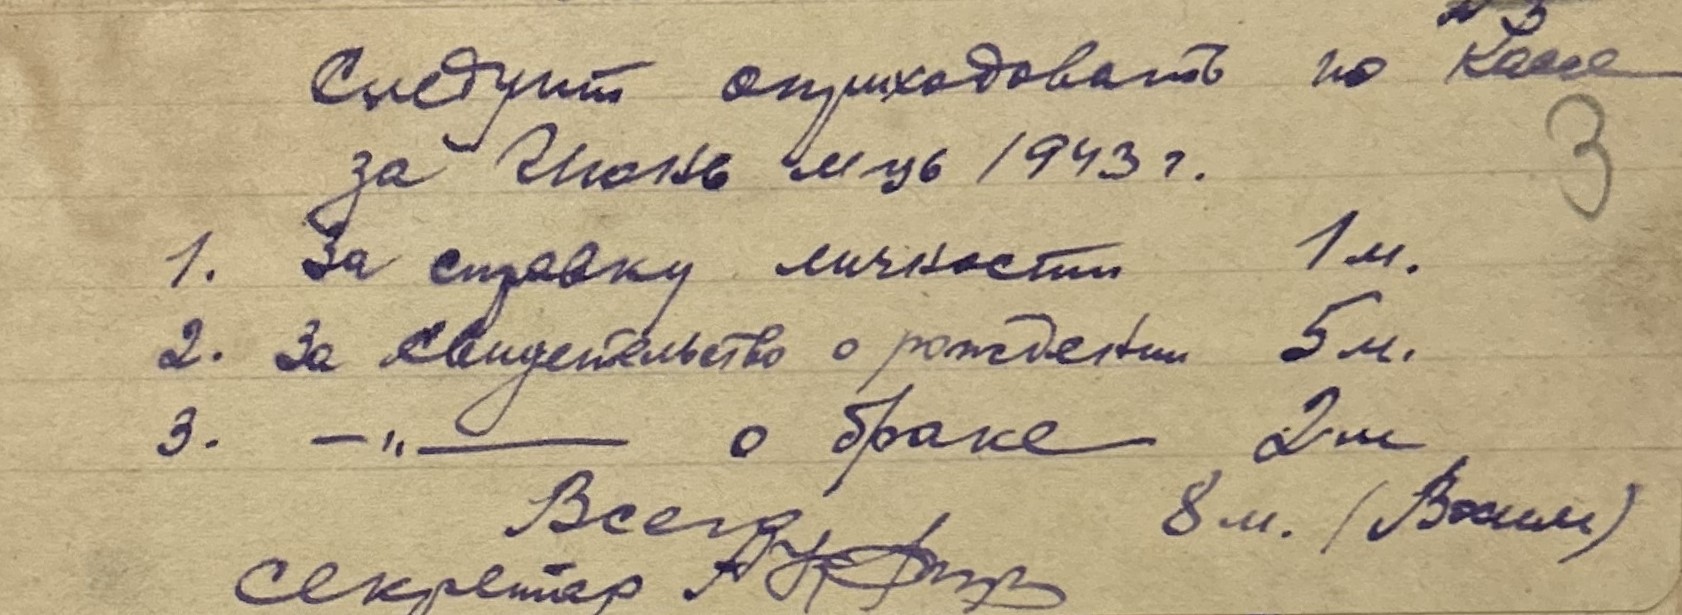 № 3
Следует оприходовать по Кассе
3
за Июнь м-ць 1943 г.
1. За справку личности 1 м.
2. За свидетельство о рождении 5 м.
3. —„— о браке 2 м
Всего 8 м. (Восим)
Секретар